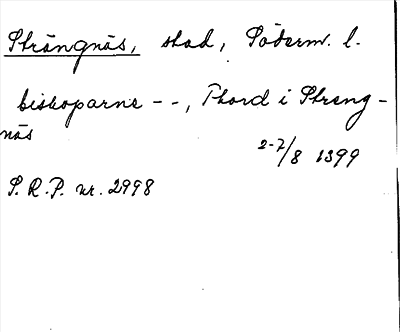 Strängnäs, stad, Söderm. l.
biskoparne - -, Thord i Streng-
näs
2-7/8 1399
S.R.P. nr. 2998